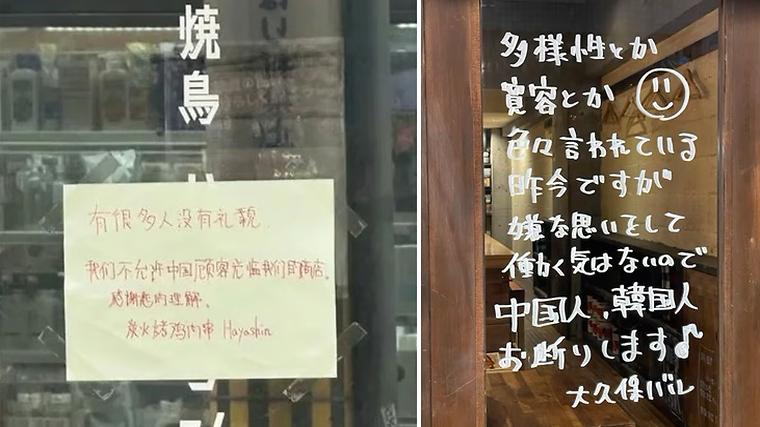 焼鳥
有很多人没有礼貌.
我们不允许中国顾客光临我们的商店。
感谢您的理解。
炭火烤鸡肉串 Hayashin
多様性とか
寛容とか
色々言われている
昨今ですが
嫌な思いをして
働く気はないので
中国人、韓国人
お断りします♪
大久保バル